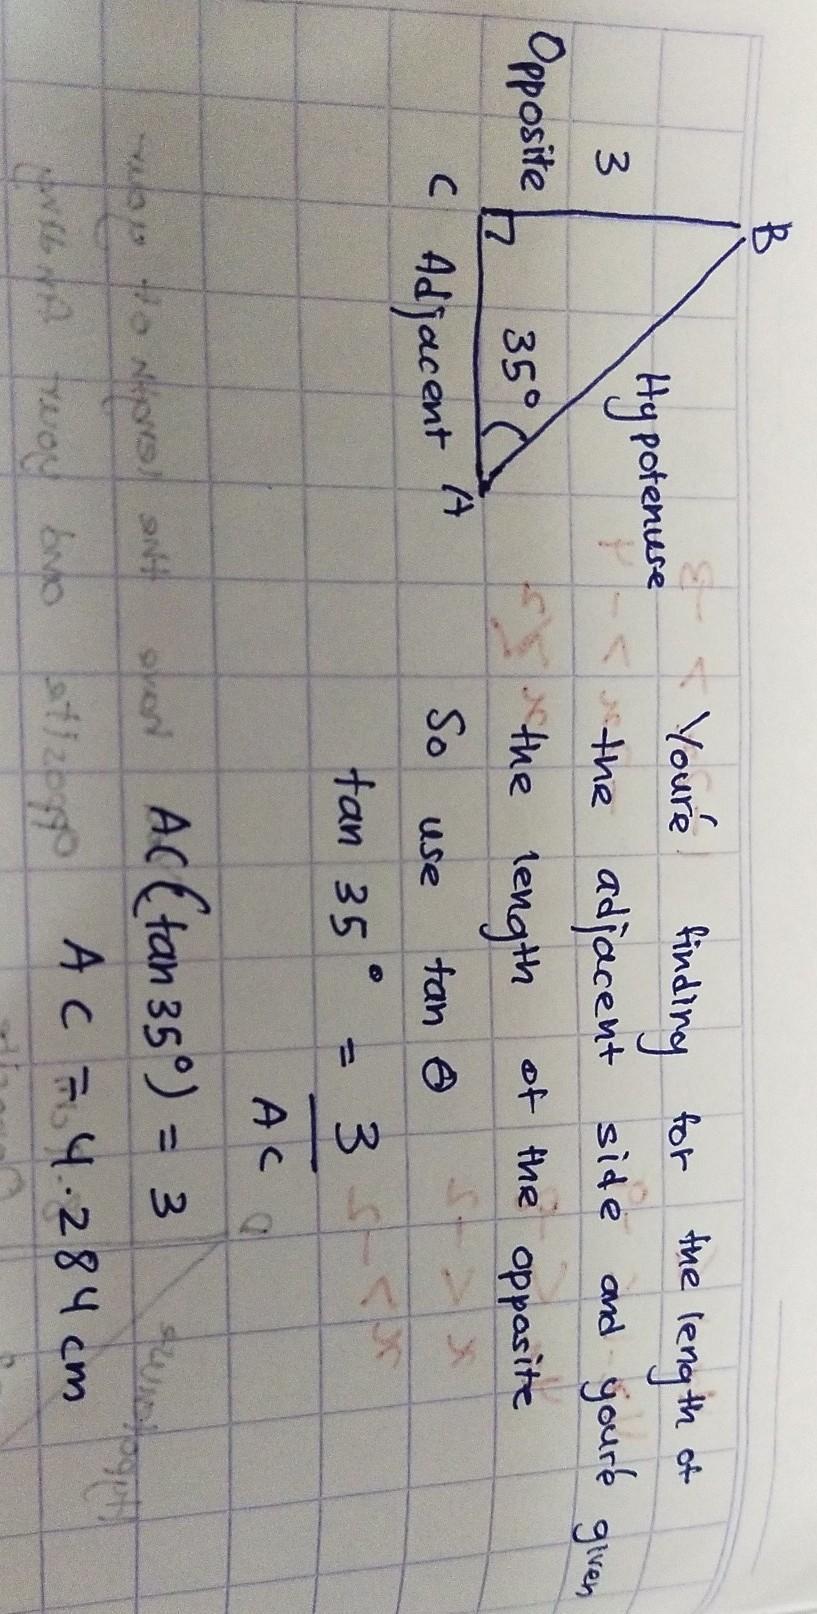 B
Hypotenuse
3
Opposite
35°
C Adjacent A
You're finding for the length of
the adjacent side and you're given
the length of the opposite
So use tan θ
tan 35° = 3
AC
AC(tan 35°) = 3
AC = 4.284 cm